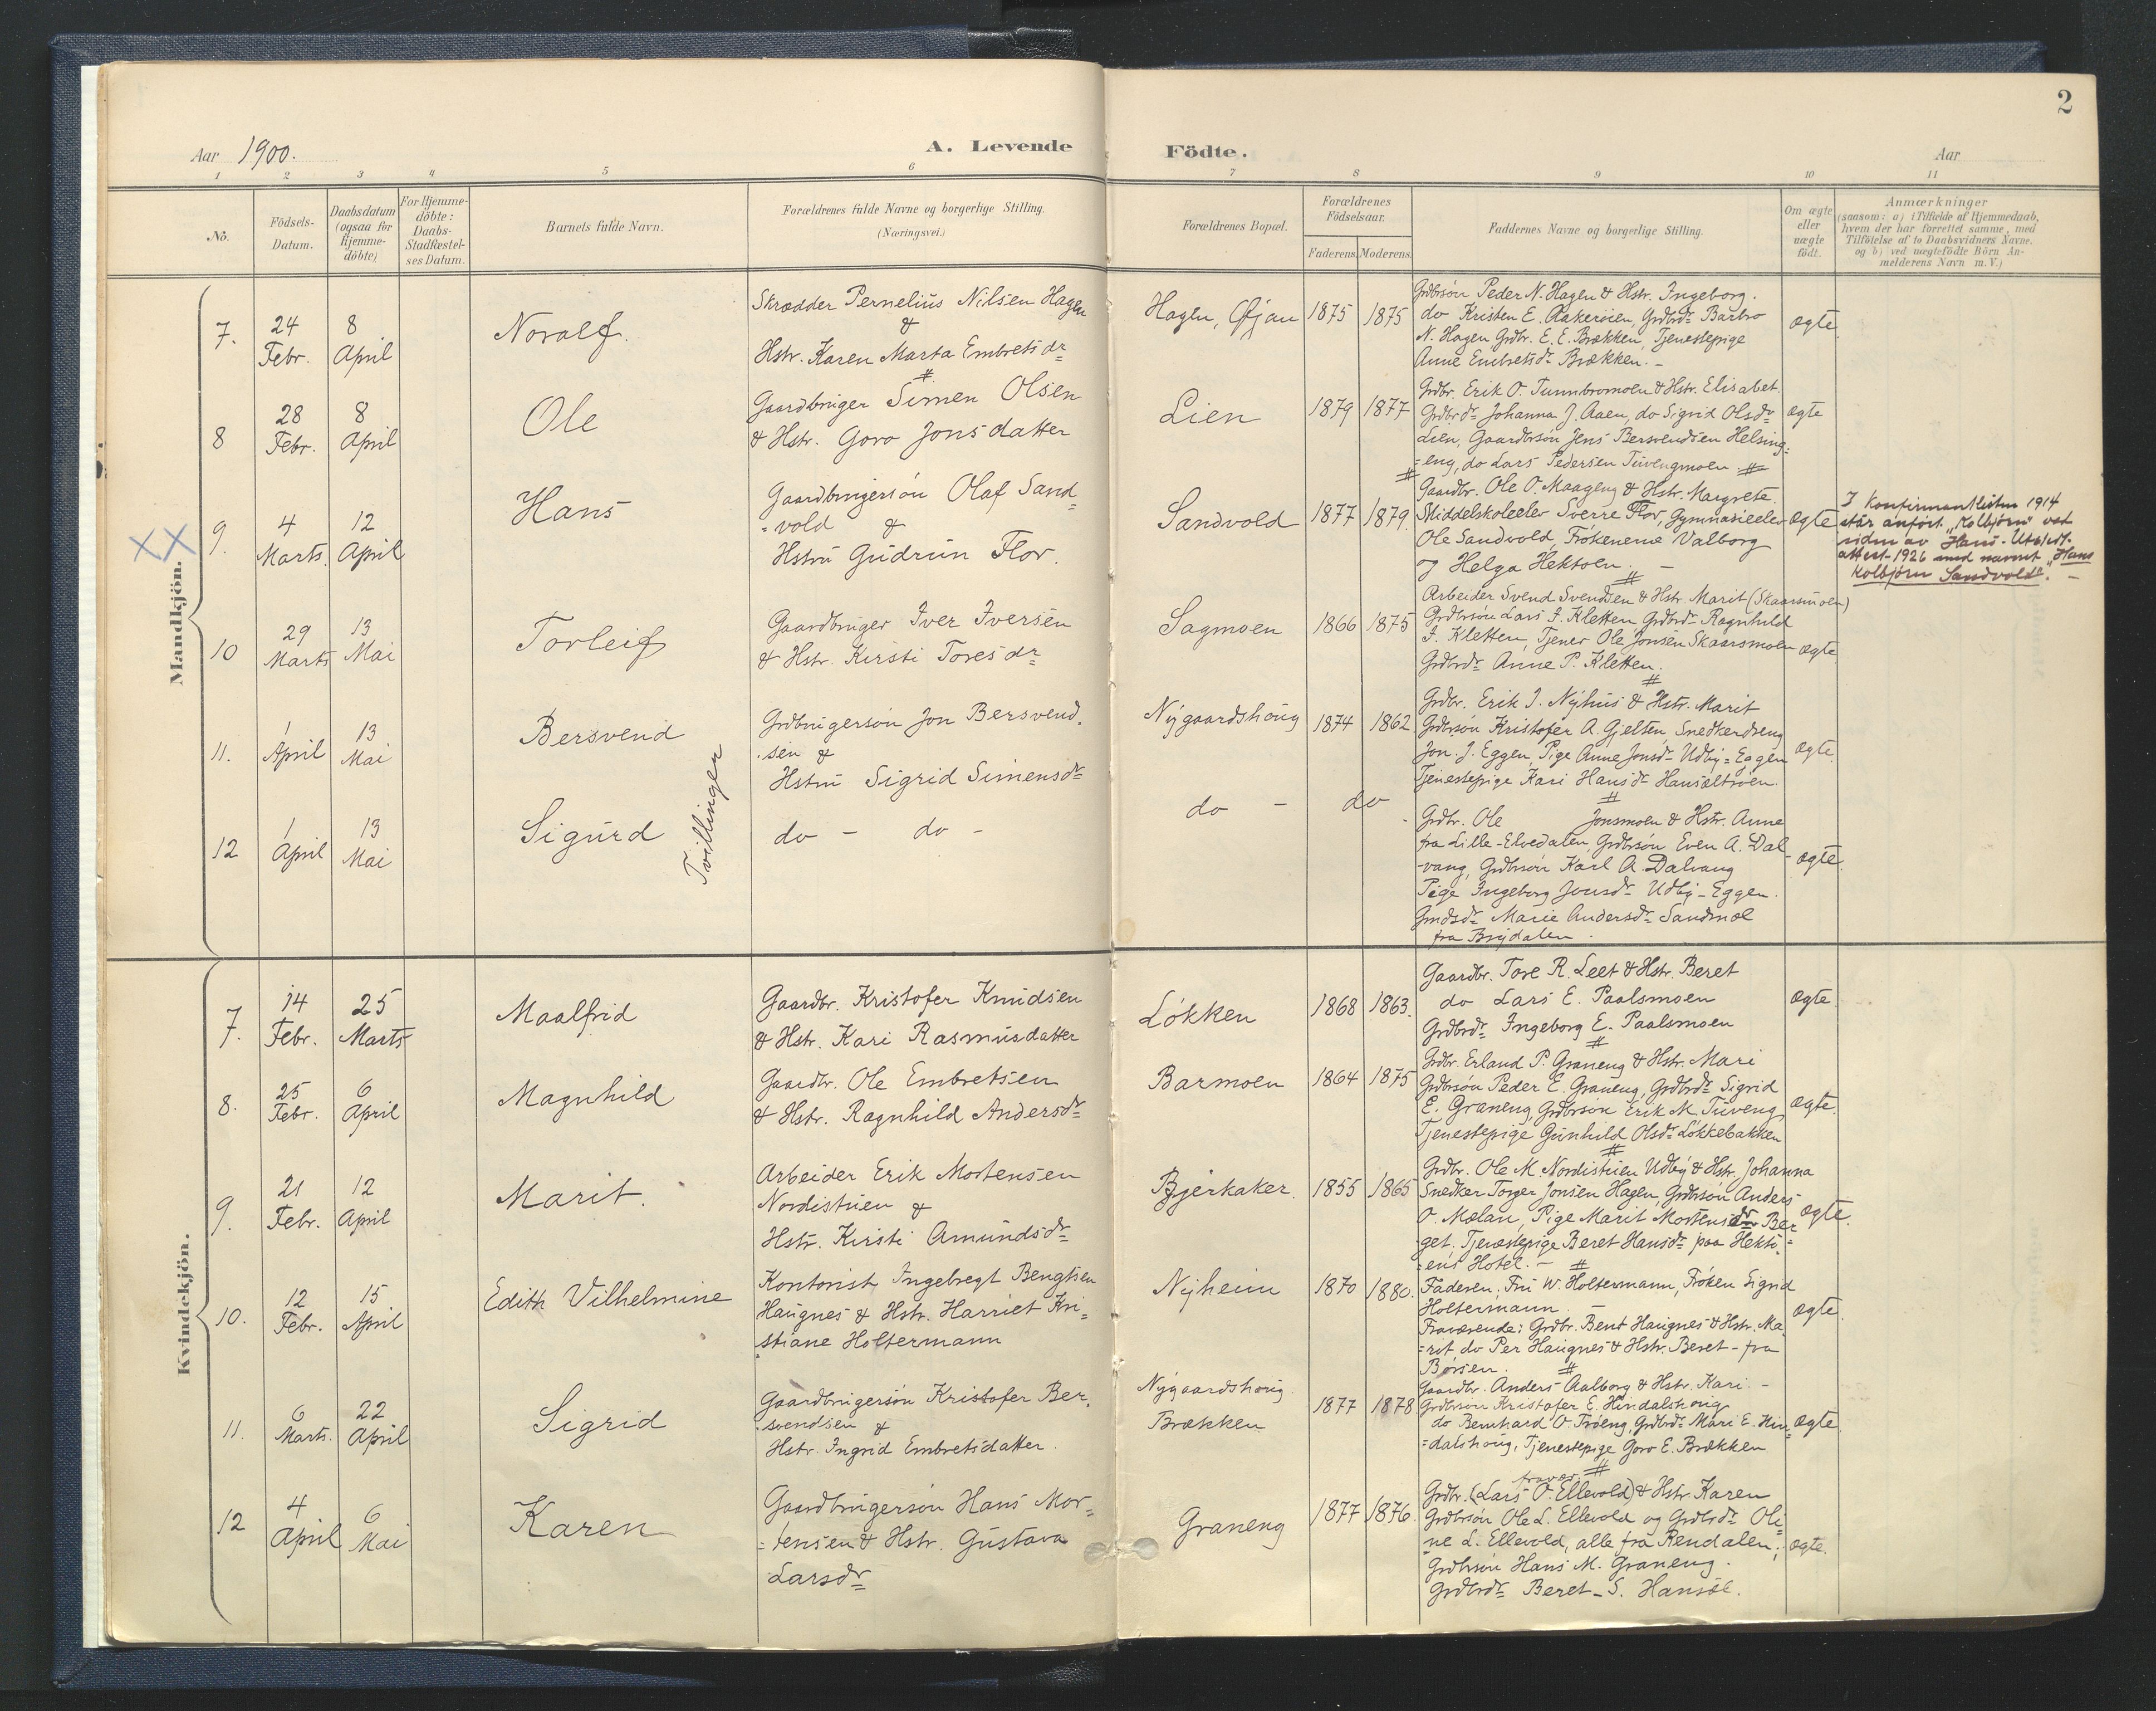 2
Aar 1900.
A. Levende Födte.
Aar
1 2 3 4 5 6 7 8 9 10 11
Nö.
Födsels-Datum.
Daabsdatum (ogsaa for Hjemme-döbte)
For Hjemme-döbte: Daabs-Stadfæstel-ses Datum.
Barnets fulde Navn.
Forældrenes fulde Navne og borgerlige Stilling.
(Næringsvei.)
Forældrenes Bopæl.
Forældrenes Födselsaar.
Faderens. Moderens.
Faddernes Navne og borgerlige Stilling.
Om ægte eller uægte födt.
Anmærkninger
(saasom: a) i Tilfælde af Hjemmedaab, hvem der har forrettet samme, med Tilföielse af to Daabsvidners Navne. og b) ved uægtefödte Börn An-melderens Navn m.V.)
Mandkjön.
7. 24 Febr. 8 April
Noralf.
Skrædder Pernelius Nilsen Hagen
&
Hstr. Karen Marta Embretsdr
Hagen, Øjan 1875 1875
Grdbrsön Peder N. Hagen & Hstr. Ingeborg.
do Kristen E. Aakeröien, Grdbrdr Barbro
N. Hagen Grdbr. E. E. Brækken, Tjenestepige
Anne Embretsdr Brækken. -
ægte
8 28 Febr. 8 April
Ole
Gaardbruger Simen Olsen
& Hstr. Goro Jonsdatter
Lien 1879 1877
Grdbr. Erik O. Tunnbromoen & Hstr. Elisabet
Grdbrdr Johanna J. Aaen, do Sigrid Olsdr
Lien, Gaardbrsön Jens Bersvendsen Helsing
=eng, do Lars Pedersen Tuvengmoen #
ægte
XX
9. 4 Marts. 12 April
Hans
Gaardbrugersön Olaf Sand
=vold &
Hstru Gudrun Flor.
Sandvold 1877 1879.
Gaardbr. Ole O. Maageng & Hstr. Margrete.
Middelskoleelev Sverre Flor, Gymnasieelev
Ole Sandvold, Frökenerne Valborg
og Helga Hektoen. -
ægte
I konfirmantlisten 1914
står anført "Kolbjörn" ved
siden av Hans. - Utstedt
attest 1926 med navnet "Hans
Kolbjörn Sandvold". -
10 29 Marts 13 Mai
Torleif
Gaardbruger Iver Iversen
& Hstr. Kirsti Toresdr
Sagmoen 1866 1875
Arbeider Svend Svendsen & Hstr Marit (Skaarsmoen)
Grdbrsön Lars I. Kletten Grdbrdr Ragnhild
I. Kletten, Tjener Ole Jonsen Skaarsmoen
Grdbrdr Anne P. Kletten.
ægte
11. 1 April 13 Mai
Bersvend
Tvillinger
Grdbrugersön Jon Bersvend.
sen &
Hstru Sigrid Simensdr
Nygaardshoug 1874 1862
Grdbr. Erik I. Nyhus & Hstr. Marit
Grdbrsön Kristofer A. Gjelten, Snedkerdreng
Jon. J. Eggen, Pige Anne Jonsdr Udby-Eggen
Tjenestepige Kari Hansdr Hansæltröen.
ægte
12 1 April 13 Mai
Sigurd
do - do -
do - do
Grdbr. Ole Jonsmoen & Hstr. Anne
fra Lille-Elvedalen, Grdbrsön Even A. Dal
-vang, Grdbrsön Karl A. Dalvang
Pige Ingeborg Jonsdr Udby-Eggen.
Gmdsdr Marie Andersdr Sandmæl
fra Brydalen.
ægte.
Kvindekjön.
7. 14 Febr. 25 Marts
Maalfrid
Gaardbr. Kristofer Knudsen
& Hstr. Kari Rasmusdatter
Løkken 1868 1863.
Gaardbr. Tore R. Leet & Hstr. Beret
do Lars E. Paalsmoen
Grdbrdr Ingeborg E. Paalsmoen
ægte
8. 25 Febr. 6 April
Magnhild
Gaardbr. Ole Embretsen
& Hstr. Ragnhild Andersdr
Barmoen 1864 1875
Grdbr. Erland P. Graneng & Hstr. Mari
Grdbrsön Peder E. Graneng, Grdbrdr Sigrid
E. Graneng, Grdbrsön Erik M. Tuveng
Tjenestepige Gunhild Olsdr Løkkebakken
ægte.
9. 21 Febr. 12 April
Marit.
Arbeider Erik Mortensen
Nordistuen &
Hstr. Kirsti Amundsdr
Bjerkaker. 1855 1865
Grdbr. Ole M. Nordistuen Udby & Hstr. Johanna
Snedker Torger Jonsen Hagen, Grdbrsön Anders
O. Mælan, Pige Marit Mortensdr Ber
get. Tjenestepige Beret Hansdr paa Hekto
=ens Hotel. -
ægte.
10. 12 Febr. 15 April
Edith Vilhelmine
Kontorist Ingebregt Bengtsen
Haugnes & Hstr. Harriet Kri-
stiane Holtermann
Nyheim 1870 1880.
Faderen. Fru W. Holtermann, Fröken Sigrid
Holtermann. -
Fraværende: Grdbr. Bent Haugnes & Hstr. Ma
=rit do Per Haugnes & Hstr. Beret - fra
Börsen.
ægte
11. 6 Marts. 22 April
Sigrid
Gaardbrugersön Kristofer Ber.
svendsen &
Hstr. Ingrid Embretsdatter.
Nygaardshoug.
Brækken 1877 1878
Gaardbr. Anders Aalborg & Hstr. Kari -
Grdbrsön Kristofer E. Hindalshoug
do Bernhard O. Tröeng, Grdbrdr Mari E. Hin
=dalshoug, Tjenestepige Goro E. Brækken
ægte
12 4 April 6 Mai
Karen
Gaardbrugersön Hans Mor=
=tensen & Hstr. Gustava
Larsdr
Graneng 1877 1876.
fravær.
Grdbr. (Lars O. Ellevold) & Hstr. Karen
Grdbrsön Ole L. Ellevold og Grdbrdr Oli=
ne L. Ellevold, alle fra Rendalen;
Grdbrsön Hans M. Graneng.
Grdbrdr Beret S. Hansæl.
ægte.